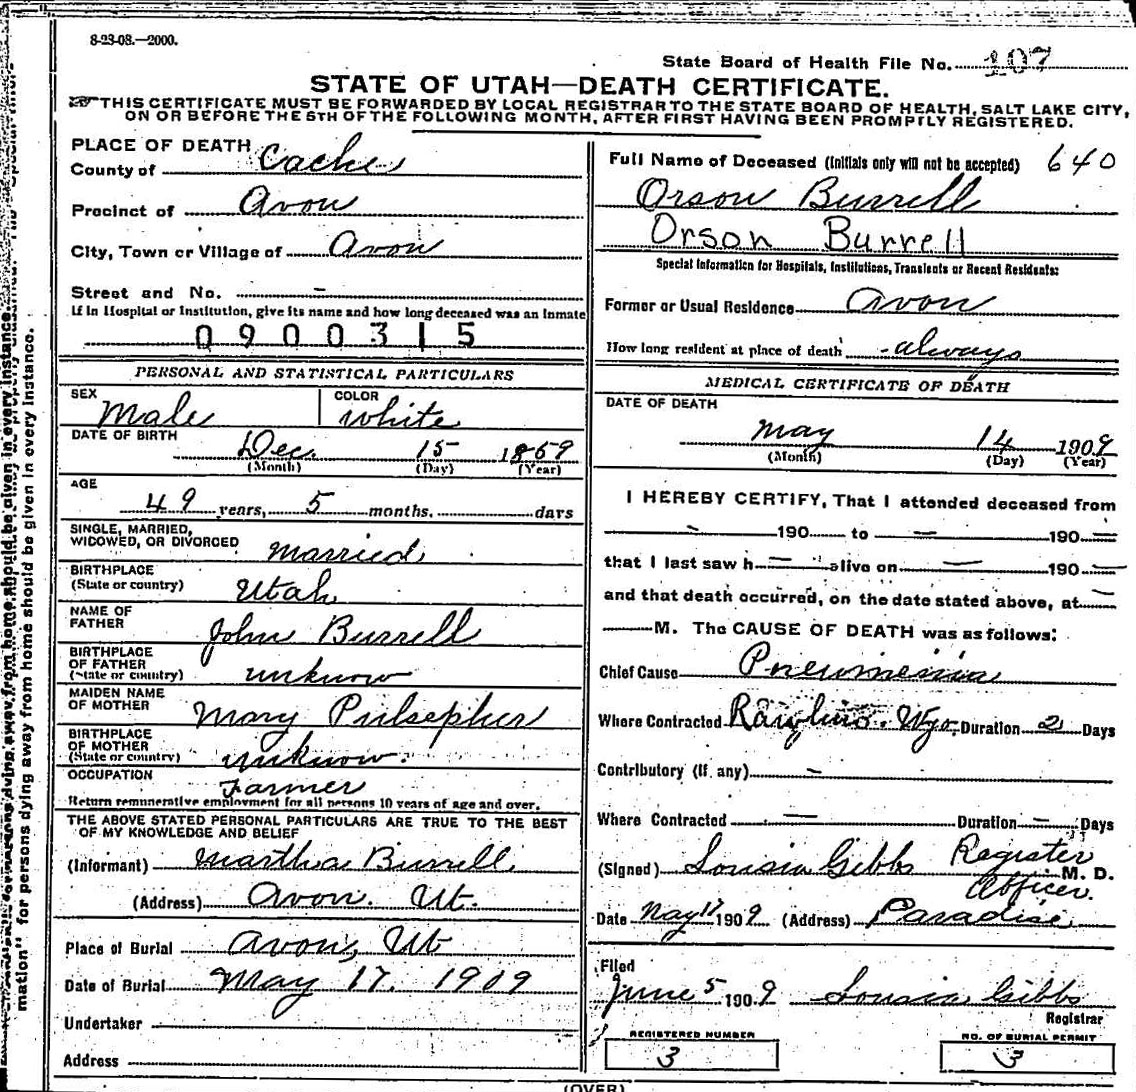 8-23-08.—2000.
State Board of Health File No. 107
STATE OF UTAH—DEATH CERTIFICATE.
THIS CERTIFICATE MUST BE FORWARDED BY LOCAL REGISTRAR TO THE STATE BOARD OF HEALTH, SALT LAKE CITY,
ON OR BEFORE THE 5TH OF THE FOLLOWING MONTH, AFTER FIRST HAVING BEEN PROMPTLY REGISTERED.
PLACE OF DEATH
County of Cache
Precinct of Avon
City, Town or Village of Avon
Street and No. –
If in Hospital or Institution, give its name and how long deceased was an inmate
0900315
PERSONAL AND STATISTICAL PARTICULARS
SEX Male
COLOR White
DATE OF BIRTH
Dec. 15 1859
(Month) (Day) (Year)
AGE
49 years, 5 months. days
SINGLE, MARRIED,
WIDOWED, OR DIVORCED Married
BIRTHPLACE
(State or country) Utah
NAME OF
FATHER John Burrell
BIRTHPLACE
OF FATHER
(State or country) unknow
MAIDEN NAME
OF MOTHER Mary Pulsepher
BIRTHPLACE
OF MOTHER
(State or country) unknow.
OCCUPATION Farmer
Return remunerative employment for all persons 10 years of age and over.
THE ABOVE STATED PERSONAL PARTICULARS ARE TRUE TO THE BEST
OF MY KNOWLEDGE AND BELIEF
(Informant) Martha Burrell
(Address) Avon. Ut.
Place of Burial Avon, Ut
Date of Burial May 17. 1909
Undertaker
Address
Full Name of Deceased (Initials only will not be accepted) 640
Orson Burrell
Orson Burrell
Special Information for Hospitals, Institutions, Transients or Recent Residents:
Former or Usual Residence Avon
How long resident at place of death always
MEDICAL CERTIFICATE OF DEATH
DATE OF DEATH
May 14 1909
(Month) (Day) (Year)
I HEREBY CERTIFY, That I attended deceased from
– 190 – to – 190 –
that I last saw h – alive on – 190 –
and that death occurred, on the date stated above, at –
– M. The CAUSE OF DEATH was as follows:
Chief Cause Pneumenia
Where Contracted Rawlins. Wyo. Duration 2 Days
Contributory (if any) –
Where Contracted – Duration – Days
(Signed) Lousia Gibbs Register M. D.
Officer.
Date May 17 1909 (Address) Paradise
Filed
June 5 1909 Lousia Gibbs
Registrar
REGISTERED NUMBER
3
NO. OF BURIAL PERMIT
3
(OVER)
mation" for persons dying away from home should be given in every instance.